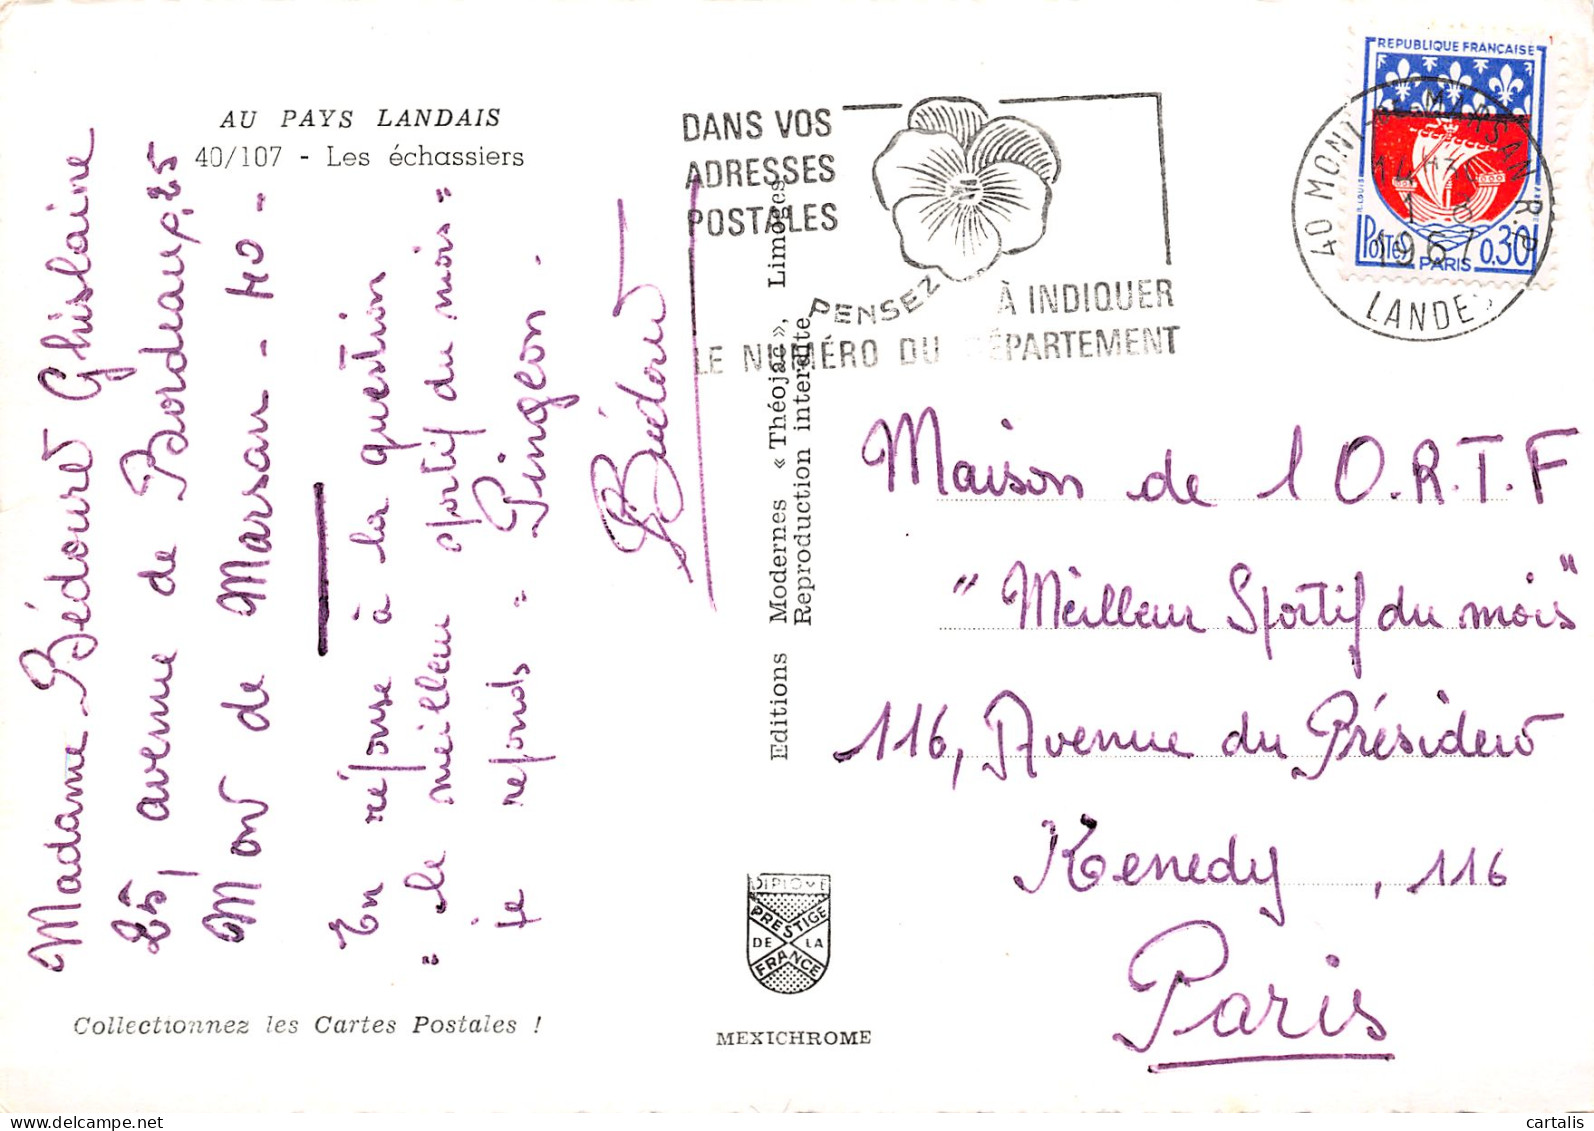 AU PAYS LANDAIS
40/107 - Les échassiers
Madame Bédouret Ghislaine
25, avenue de Bordeaux, 25
Mont de Marsan - 40 -
En réponse à la question
" le meilleur sportif du mois "
je réponds = Pingeon.
Bédouret
Editions Modernes « Théojac », Limoges
Reproduction interdite
DANS VOS
ADRESSES
POSTALES
PENSEZ
À INDIQUER
LE NUMÉRO DU DÉPARTEMENT
REPUBLIQUE FRANÇAISE
Postes 0,30
PARIS
40 MONT-DE-MARSAN R.P.
14 H 30
1 8
1967
LANDES
Maison de l O.R.T.F
" Meilleur Sportif du mois "
116, Avenue du Président
Kenedy, 116
Paris
DIPLOME
PRESTIGE
DE LA
FRANCE
Collectionnez les Cartes Postales !
MEXICHROME
cartalis